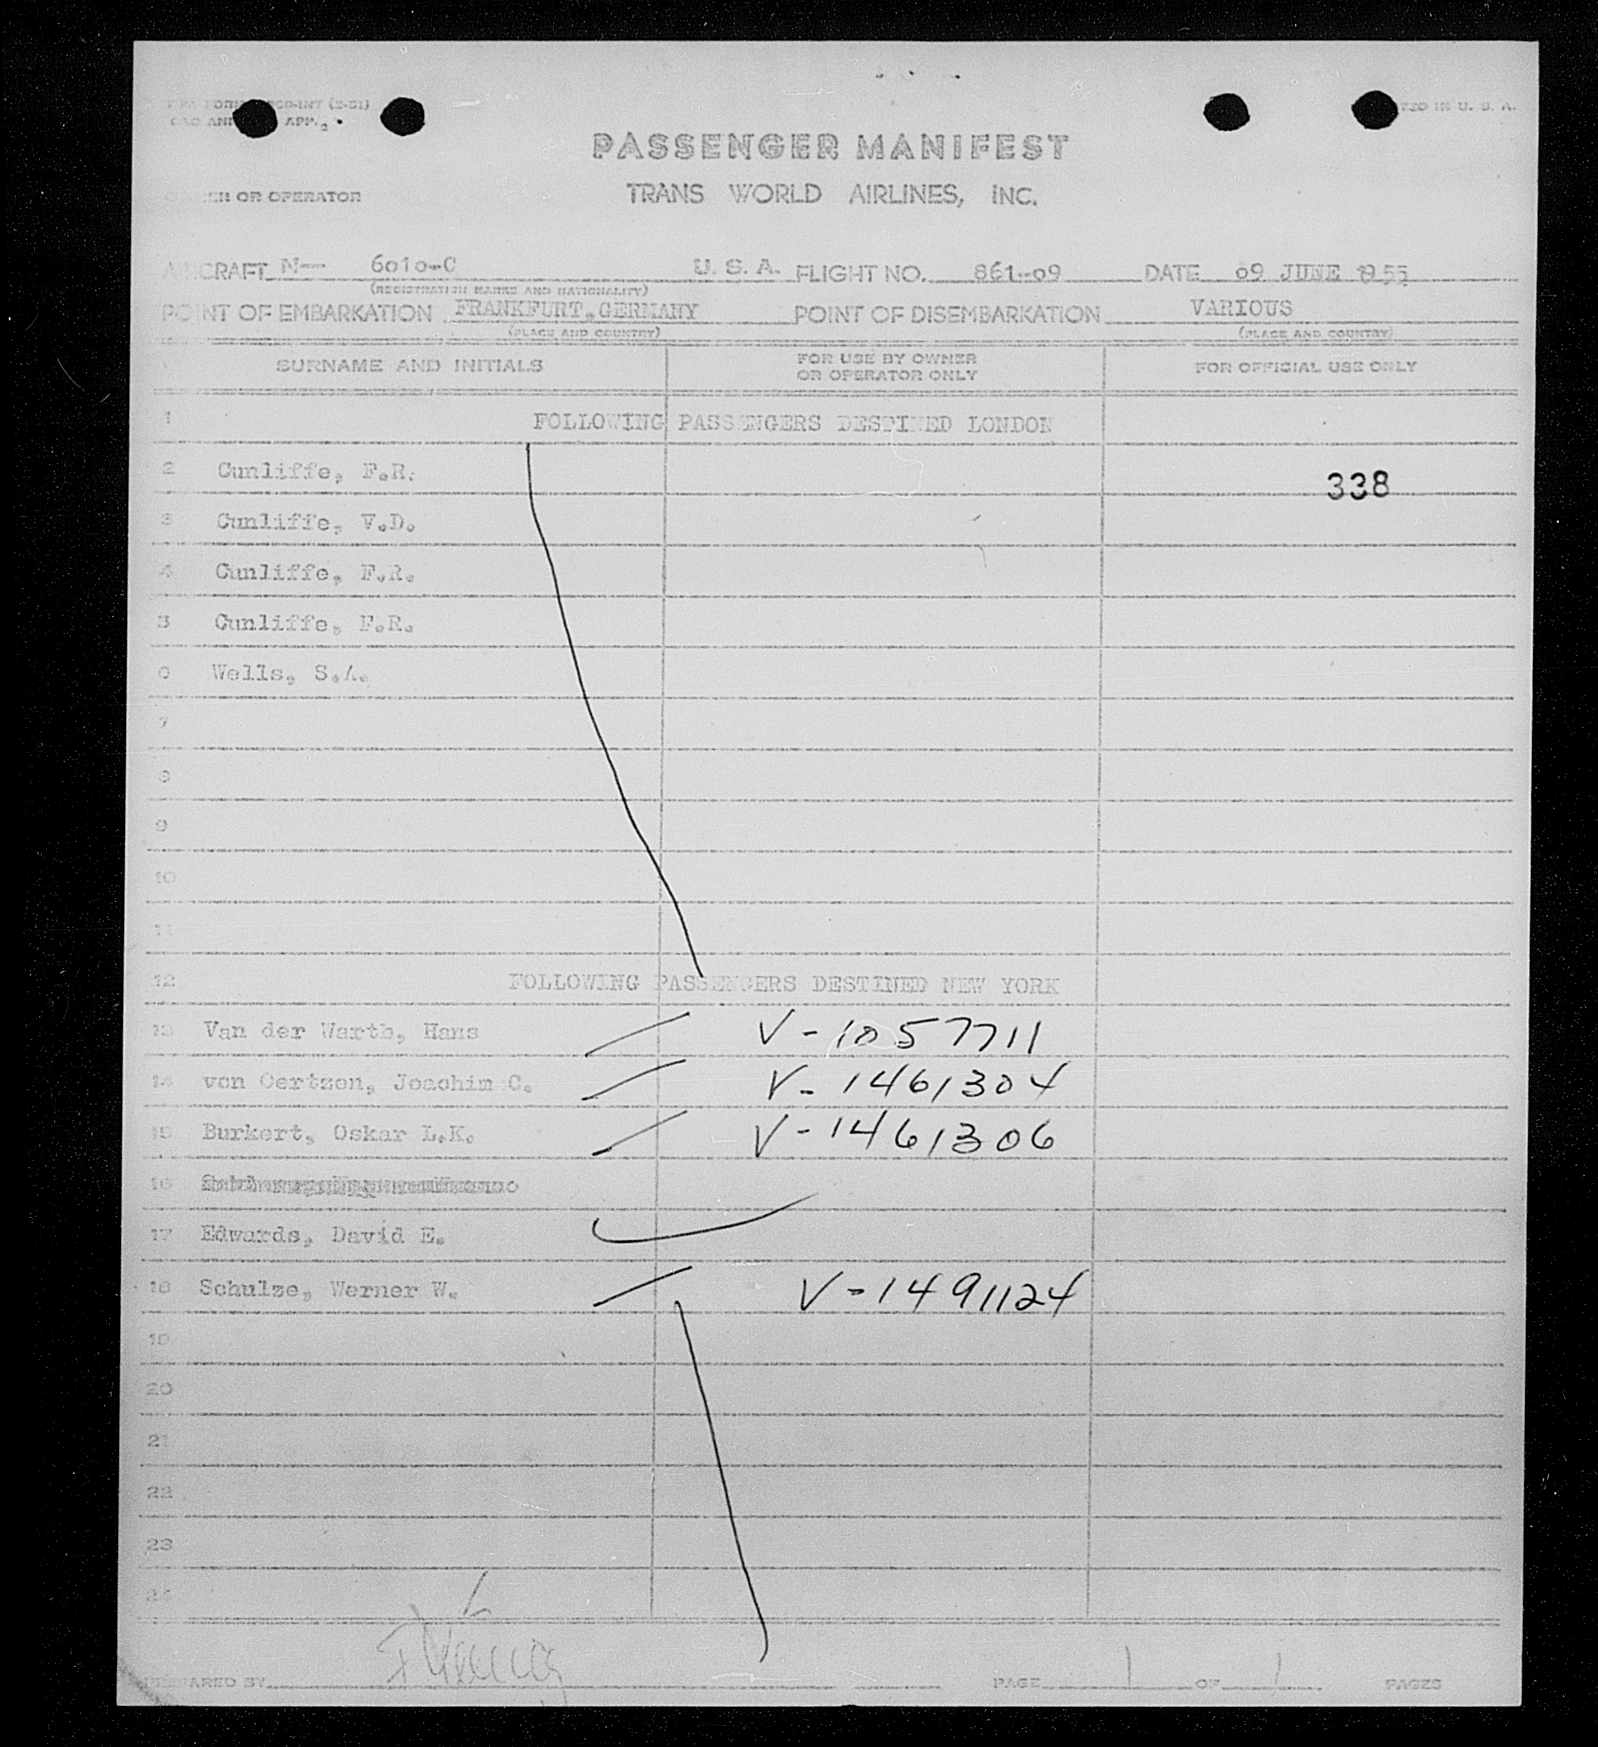 (5-51)
PRINTED IN U. S. A.
PASSENGER MANIFEST
OWNER OR OPERATOR TRANS WORLD AIRLINES, INC.
AIRCRAFT N-- 6010-C U. S. A. FLIGHT NO. 861-09 DATE 09 JUNE 1955
(REGISTRATION MARKS AND NATIONALITY)
POINT OF EMBARKATION FRANKFURT, GERMANY POINT OF DISEMBARKATION VARIOUS
(PLACE AND COUNTRY) (PLACE AND COUNTRY)
SURNAME AND INITIALS FOR USE BY OWNER OR OPERATOR ONLY FOR OFFICIAL USE ONLY
1 FOLLOWING PASSENGERS DESTINED LONDON
2 Cunliffe, F.R. 338
3 Cunliffe, V.D.
4 Cunliffe, F.R.
5 Cunliffe, F.R.
6 Wells, S.A.
7
8
9
10
11
12 FOLLOWING PASSENGERS DESTINED NEW YORK
13 Van der Warth, Hans V-1057711
14 von Oertzen, Joachim C. V-1461304
15 Burkert, Oskar L.K. V-1461306
16
17 Edwards, David E.
18 Schulze, Werner W. V-1491124
19
20
21
22
23
24
PREPARED BY PAGE 1 OF 1 PAGES